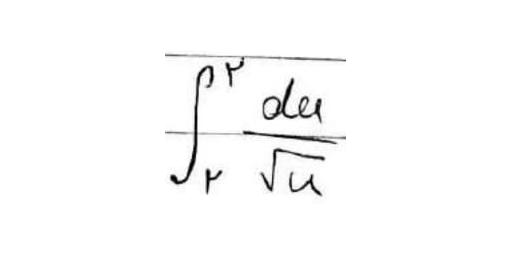 ∫₍۲₎^۲ du/√u